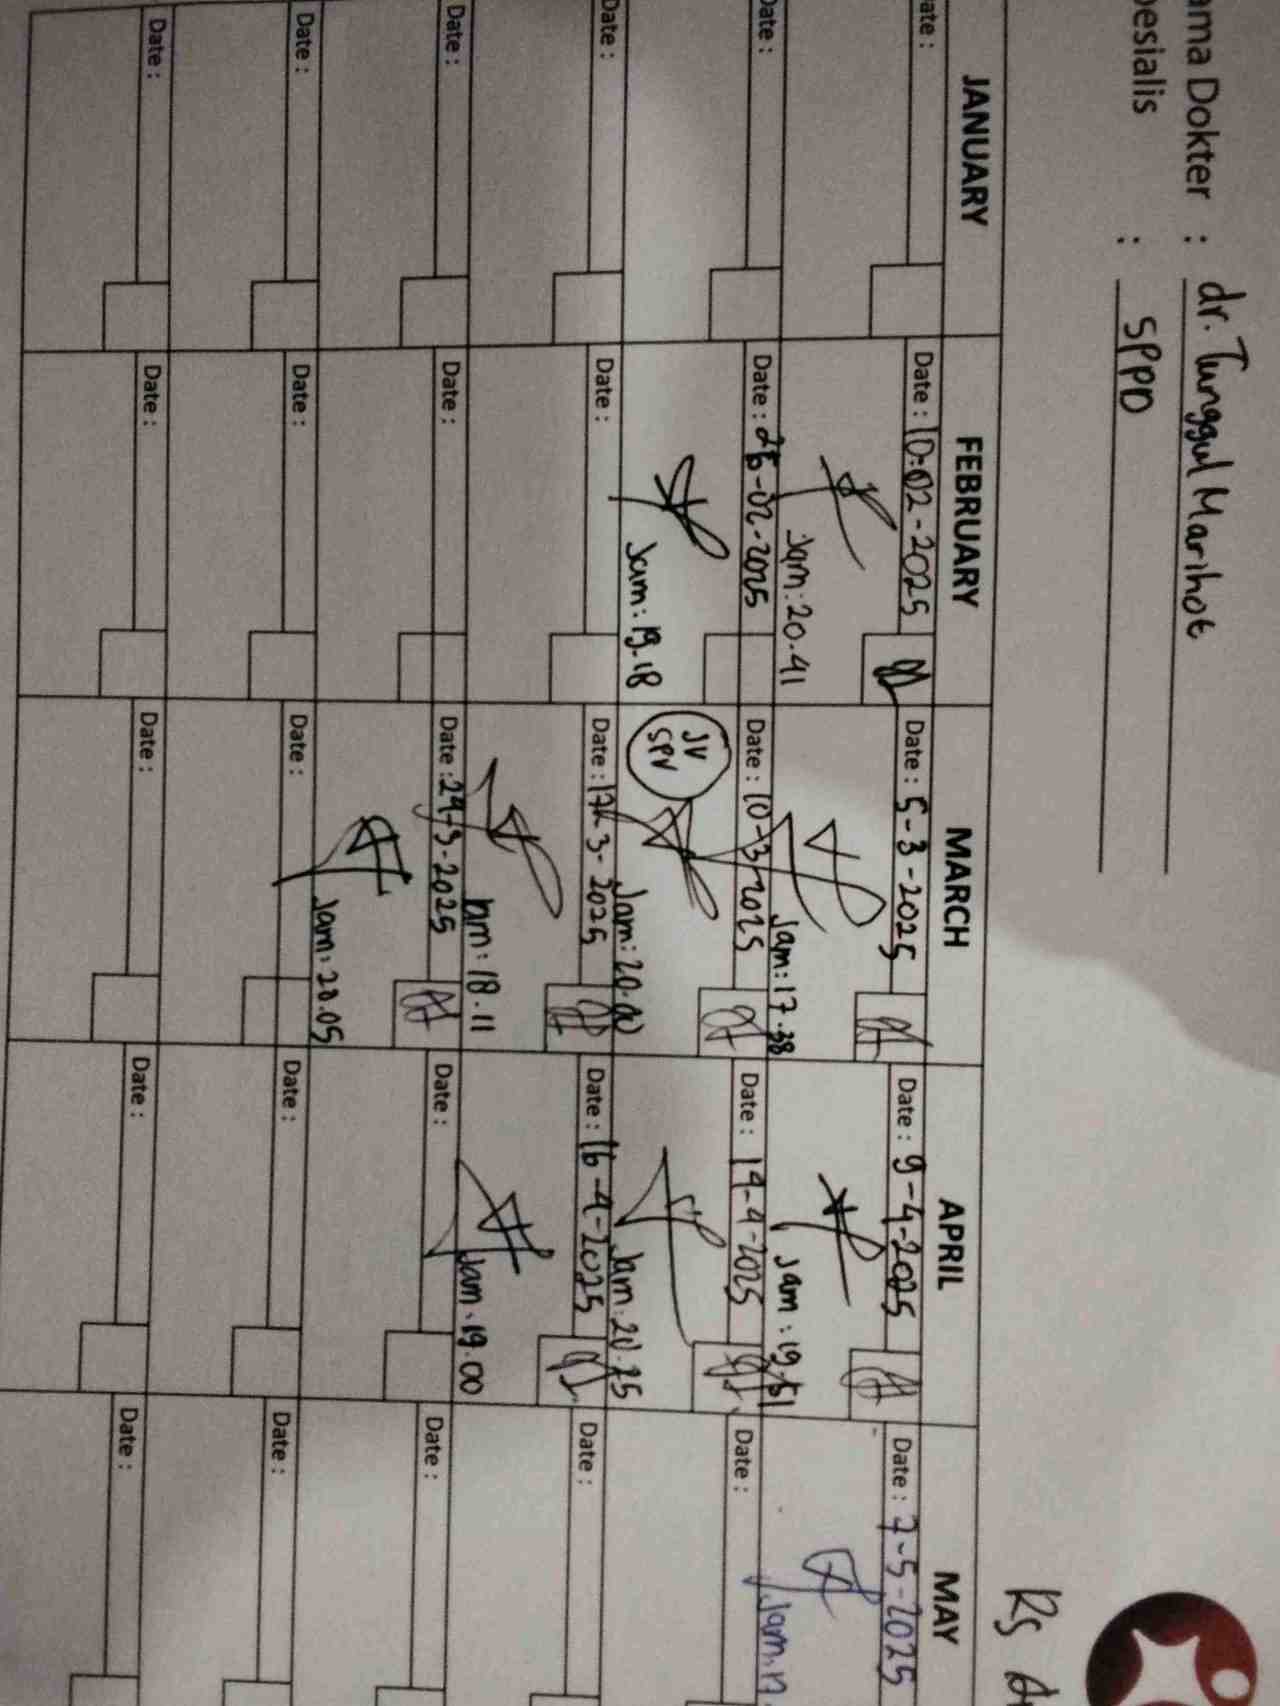 ama Dokter : dr. Tunggul Marihot
pesialis : SPPD
Rs
JANUARY FEBRUARY MARCH APRIL MAY
ate : Date : 10-02-2025 Date : 5-3-2025 Date : 9-4-2025 Date : 7-5-2025
Jam : 20.41 Jam : 17.38 Jam : 19.51 Jam
Date : Date : 26-02-2025 Date : 10-3-2025 Date : 14-4-2025 Date :
Jam : 19.18 JV SPV Jam : 20.00 Jam : 20.25
Date : Date : Date : 17-3-2025 Date : 16-4-2025 Date :
am : 18.11 Jam : 19.00
Date : Date : Date : 24-3-2025 Date : Date :
Jam : 20.05
Date : Date : Date : Date : Date :
Date : Date : Date : Date : Date :